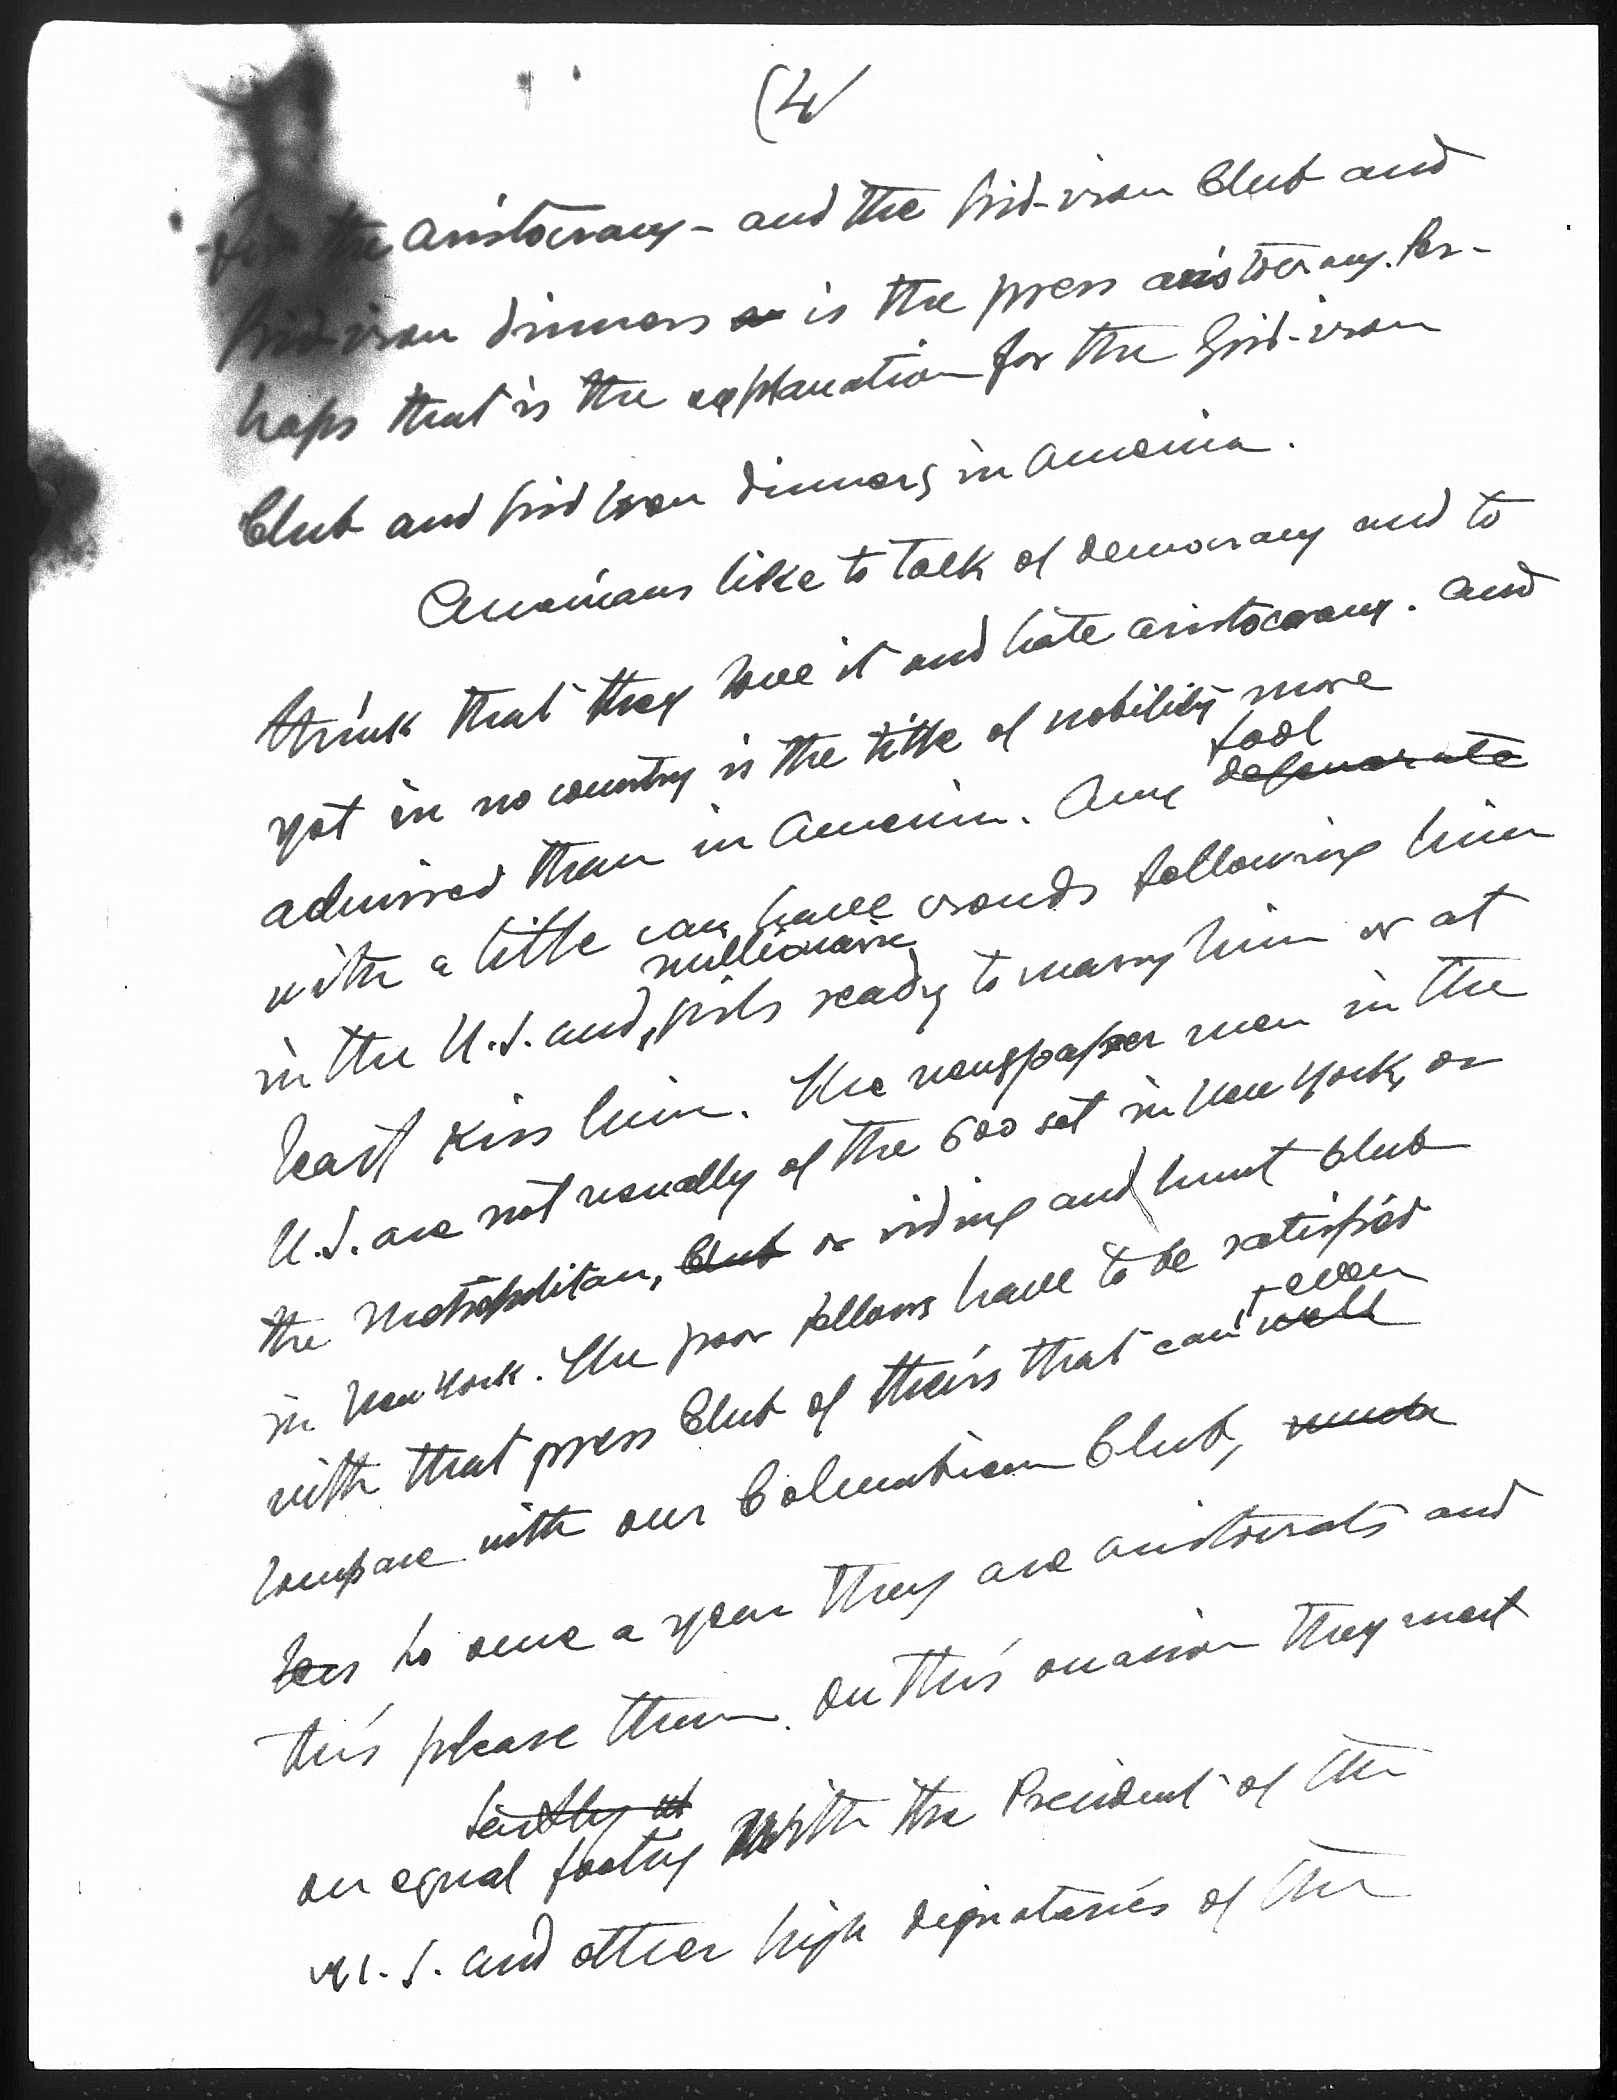 (4)
for the aristocracy - and the Grid-iron Club and
Grid-iron dinners is the press aristocracy. Per-
haps that is the explanation for the Grid-iron
Club and Grid iron dinners in America.
Americans like to talk of democracy and to
think that they love it and hate aristocracy. And
yet in no country is the title of nobility more
admired than in America. Any fool degenerate
with a title can have crowds following him
in the U.S. and millionaire girls ready to marry him or at
least kiss him. The newspaper men in the
U.S. are not usually of the 600 set in New York, or
the Metropolitan, Club or riding and hunt Club
in New York. The poor fellows have to be satisfied
with that press Club of theirs that can't even well
compare with our Columbian Club,
so once a year they are aristocrats and
this please them. On this occasion they meet
on equal footing with the President of the
U.S. and other high dignitaries of the